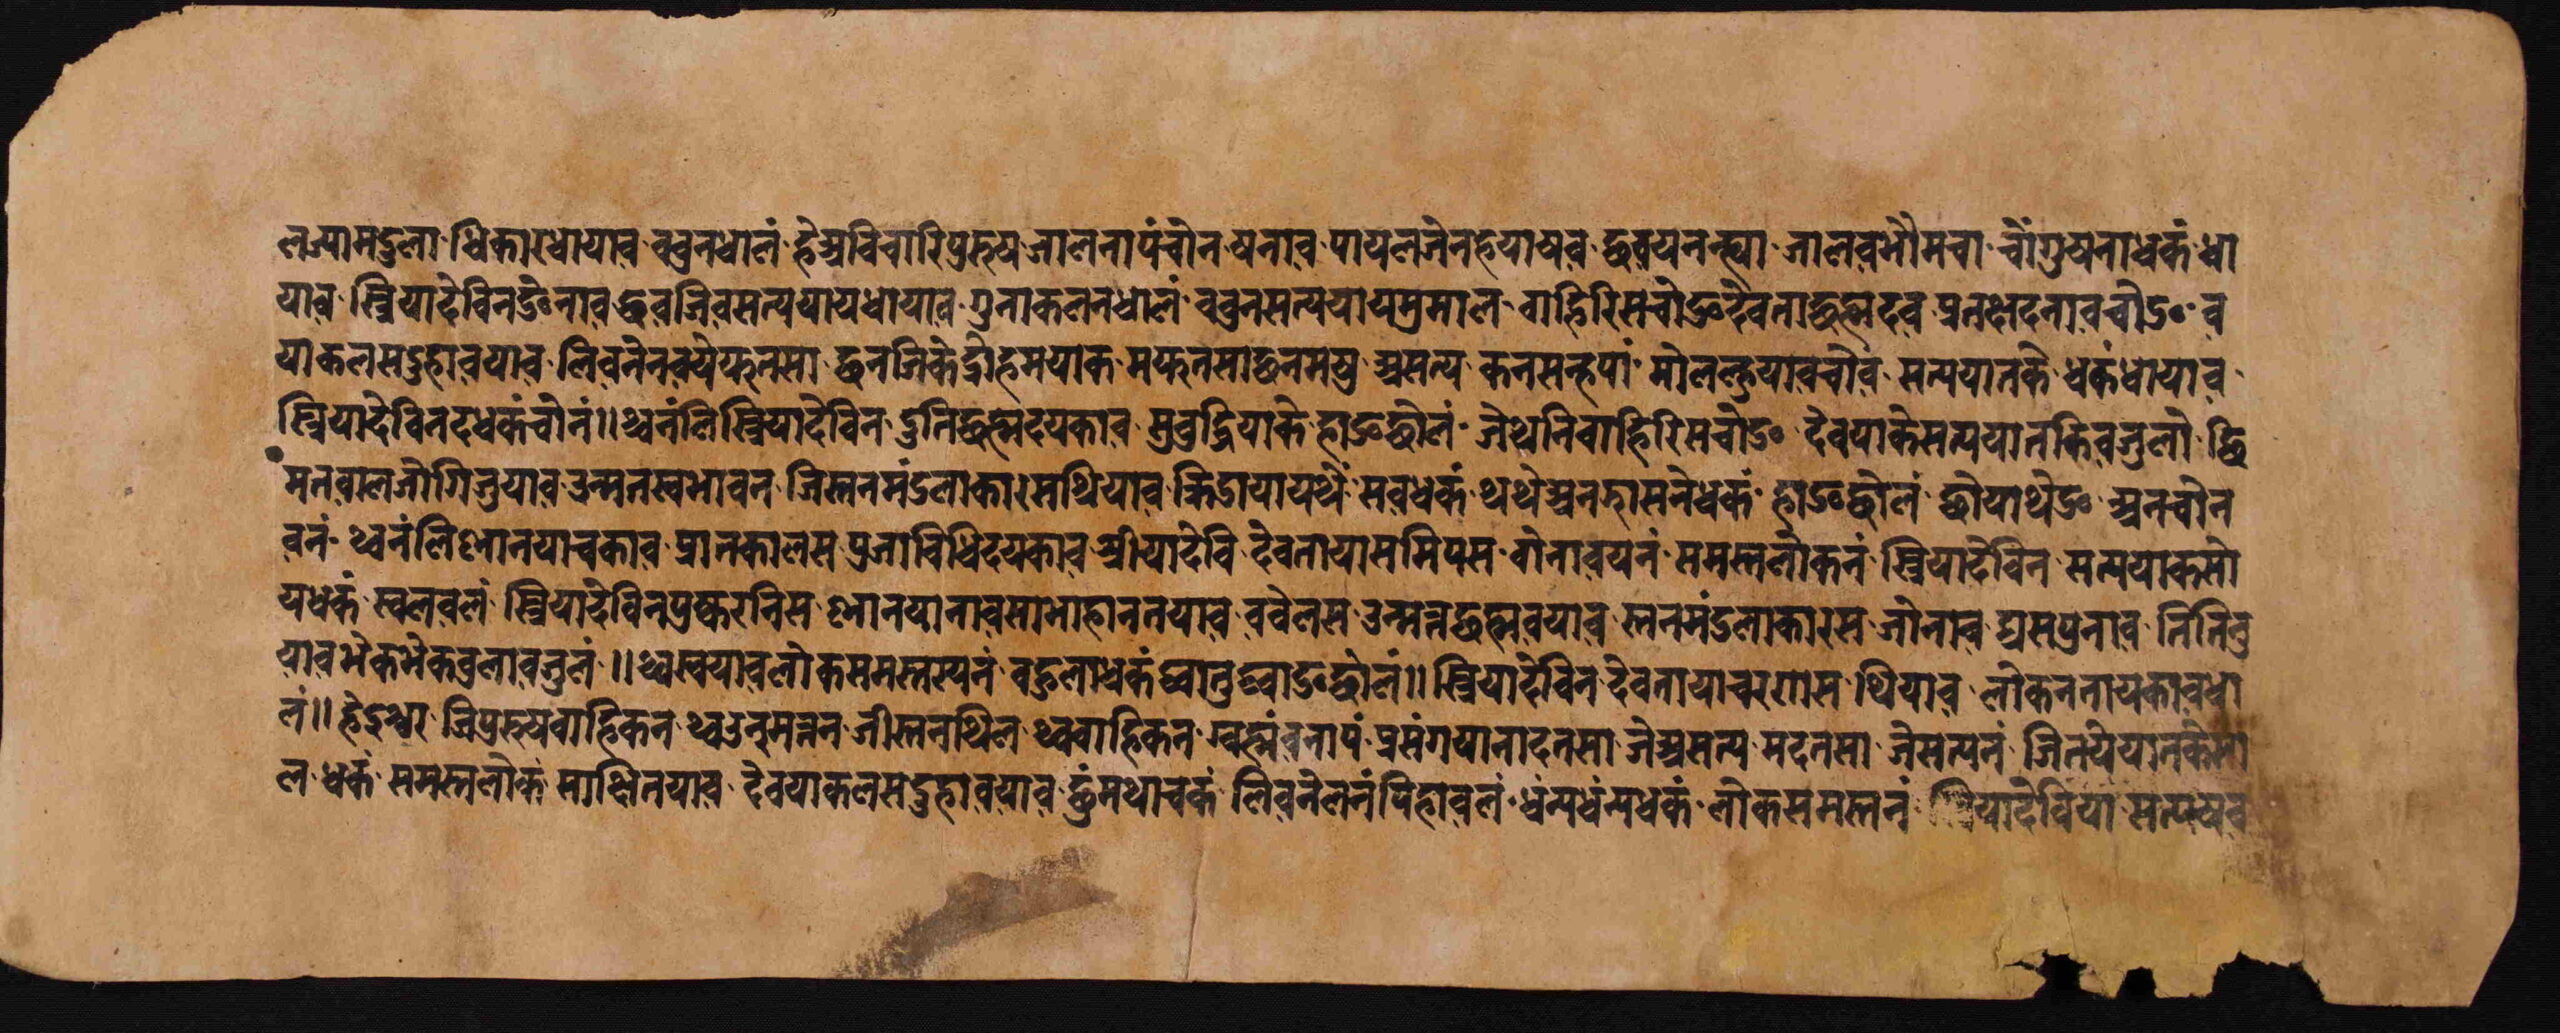 लज्यामदुला धिकारधोयाव बबुनधालं हेअविचारिपुरुष जालनापंचोन षनाव पायलजेनहयाषव छुवयनन्ह्या जालवभौमचा चोंगुषनाधकं धा
याव स्त्रियादेविनङेनाव छुवजिवसत्ययायधोयाव गुनाकलनधालं बबुनसत्ययायमुमाल वाहिरिसचोङदेवताछह्मदव प्रतक्षदनावचोङ व
याकलसदुहावयाव लिवनेनवयेफतसा छनजिकेद्रोहमयाक मफतसाछनमयु असत्य कनसन्हपां मोलल्हुयावचोव सत्ययातके धकंधायाव
स्त्रियादेविनदधकंचोनं॥ थ्वनंलिस्त्रियादेविन दुतिछह्मदयकाव सुबुद्धियाके हाङछोलं जेथनिवाहिरिसचोङ देवयाकेसत्ययातकिवजुलो छि
मनवालजोगिजुयाव उन्मतस्वभावन जिस्तनमंडलाकारसथियाव क्रिडायायथें सवधकं थथेअनहासनेधकं हाङछोलं छोयाथेङ अनचोन
वनं थ्वनंलिस्नानयाचकाव प्रातकालस पुजाविधिदयकाव स्त्रीयादेवि देवतायासमिपस वोनावयनं समस्तलोकनं स्त्रियादेविन सत्ययाकसो
यधकं स्वलवलं स्त्रियादेविनपुष्करनिस स्नानयानावसोभाहाननयाव ववेलस उन्मत्तछह्मवयाव स्तनमंडलाकारस जोनाव द्यसपुनाव नितिनु
यावभेकभेकवुलावजुलं॥ थ्वस्वयावलोकसमस्तस्यनं वहुलाधकंघ्वातुघ्वाङछोलं॥ स्त्रियादेविन देवतायाचरणोस थियाव लोकनतायकावधा
लं॥ हेइश्वर जिपुरुषवाहिकन थ्वउन्मत्तन जीस्तनथिल थ्ववाहिकन ग्वह्मंवनापं प्रसंगयानादतसा जेअसत्य मदतसा जेसत्यनं जितयेयातकेमा
ल धकं समस्तलोक साक्षितयाव देवयाकलसदुहावयाव छुंमथाचकं लिवनेलनंपिहावलं धंन्यधंन्यधकं लोकसमस्तनं स्त्रियादेविया सत्यषव